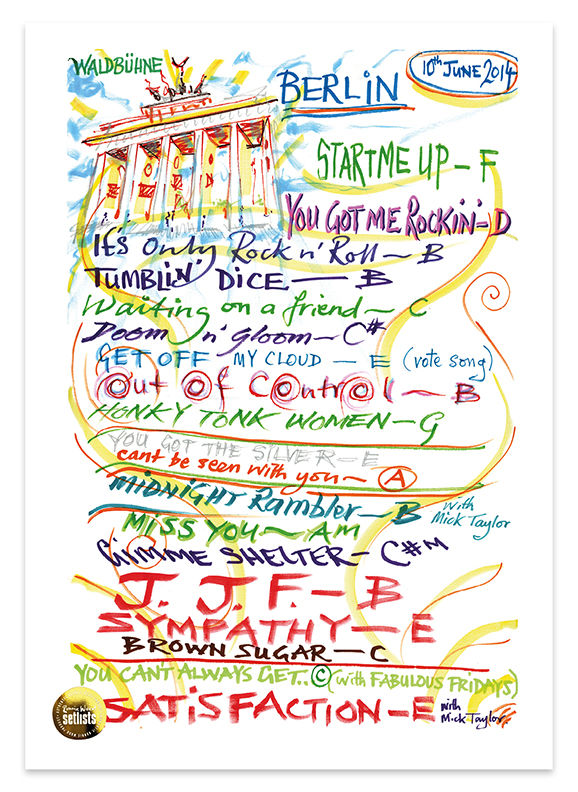 WALDBÜHNE
BERLIN
10th JUNE 2014
START ME UP – F
YOU GOT ME ROCKIN' – D
It's Only Rock n' Roll – B
TUMBLIN' DICE – B
Waiting on a friend – C
Doom n' gloom – C#
GET OFF MY CLOUD – E (vote song)
Out Of Control – B
HONKY TONK WOMEN – G
YOU GOT THE SILVER – E
cant be seen with you – A
MIDNIGHT Rambler – B with Mick Taylor
MISS YOU – AM
GIMME SHELTER – C#M
J. J. F. – B
SYMPATHY – E
BROWN SUGAR – C
YOU CANT ALWAYS GET.. C (with FABULOUS FRIDAYS)
SATISFACTION – E with Mick Taylor
Ronnie Wood
setlists